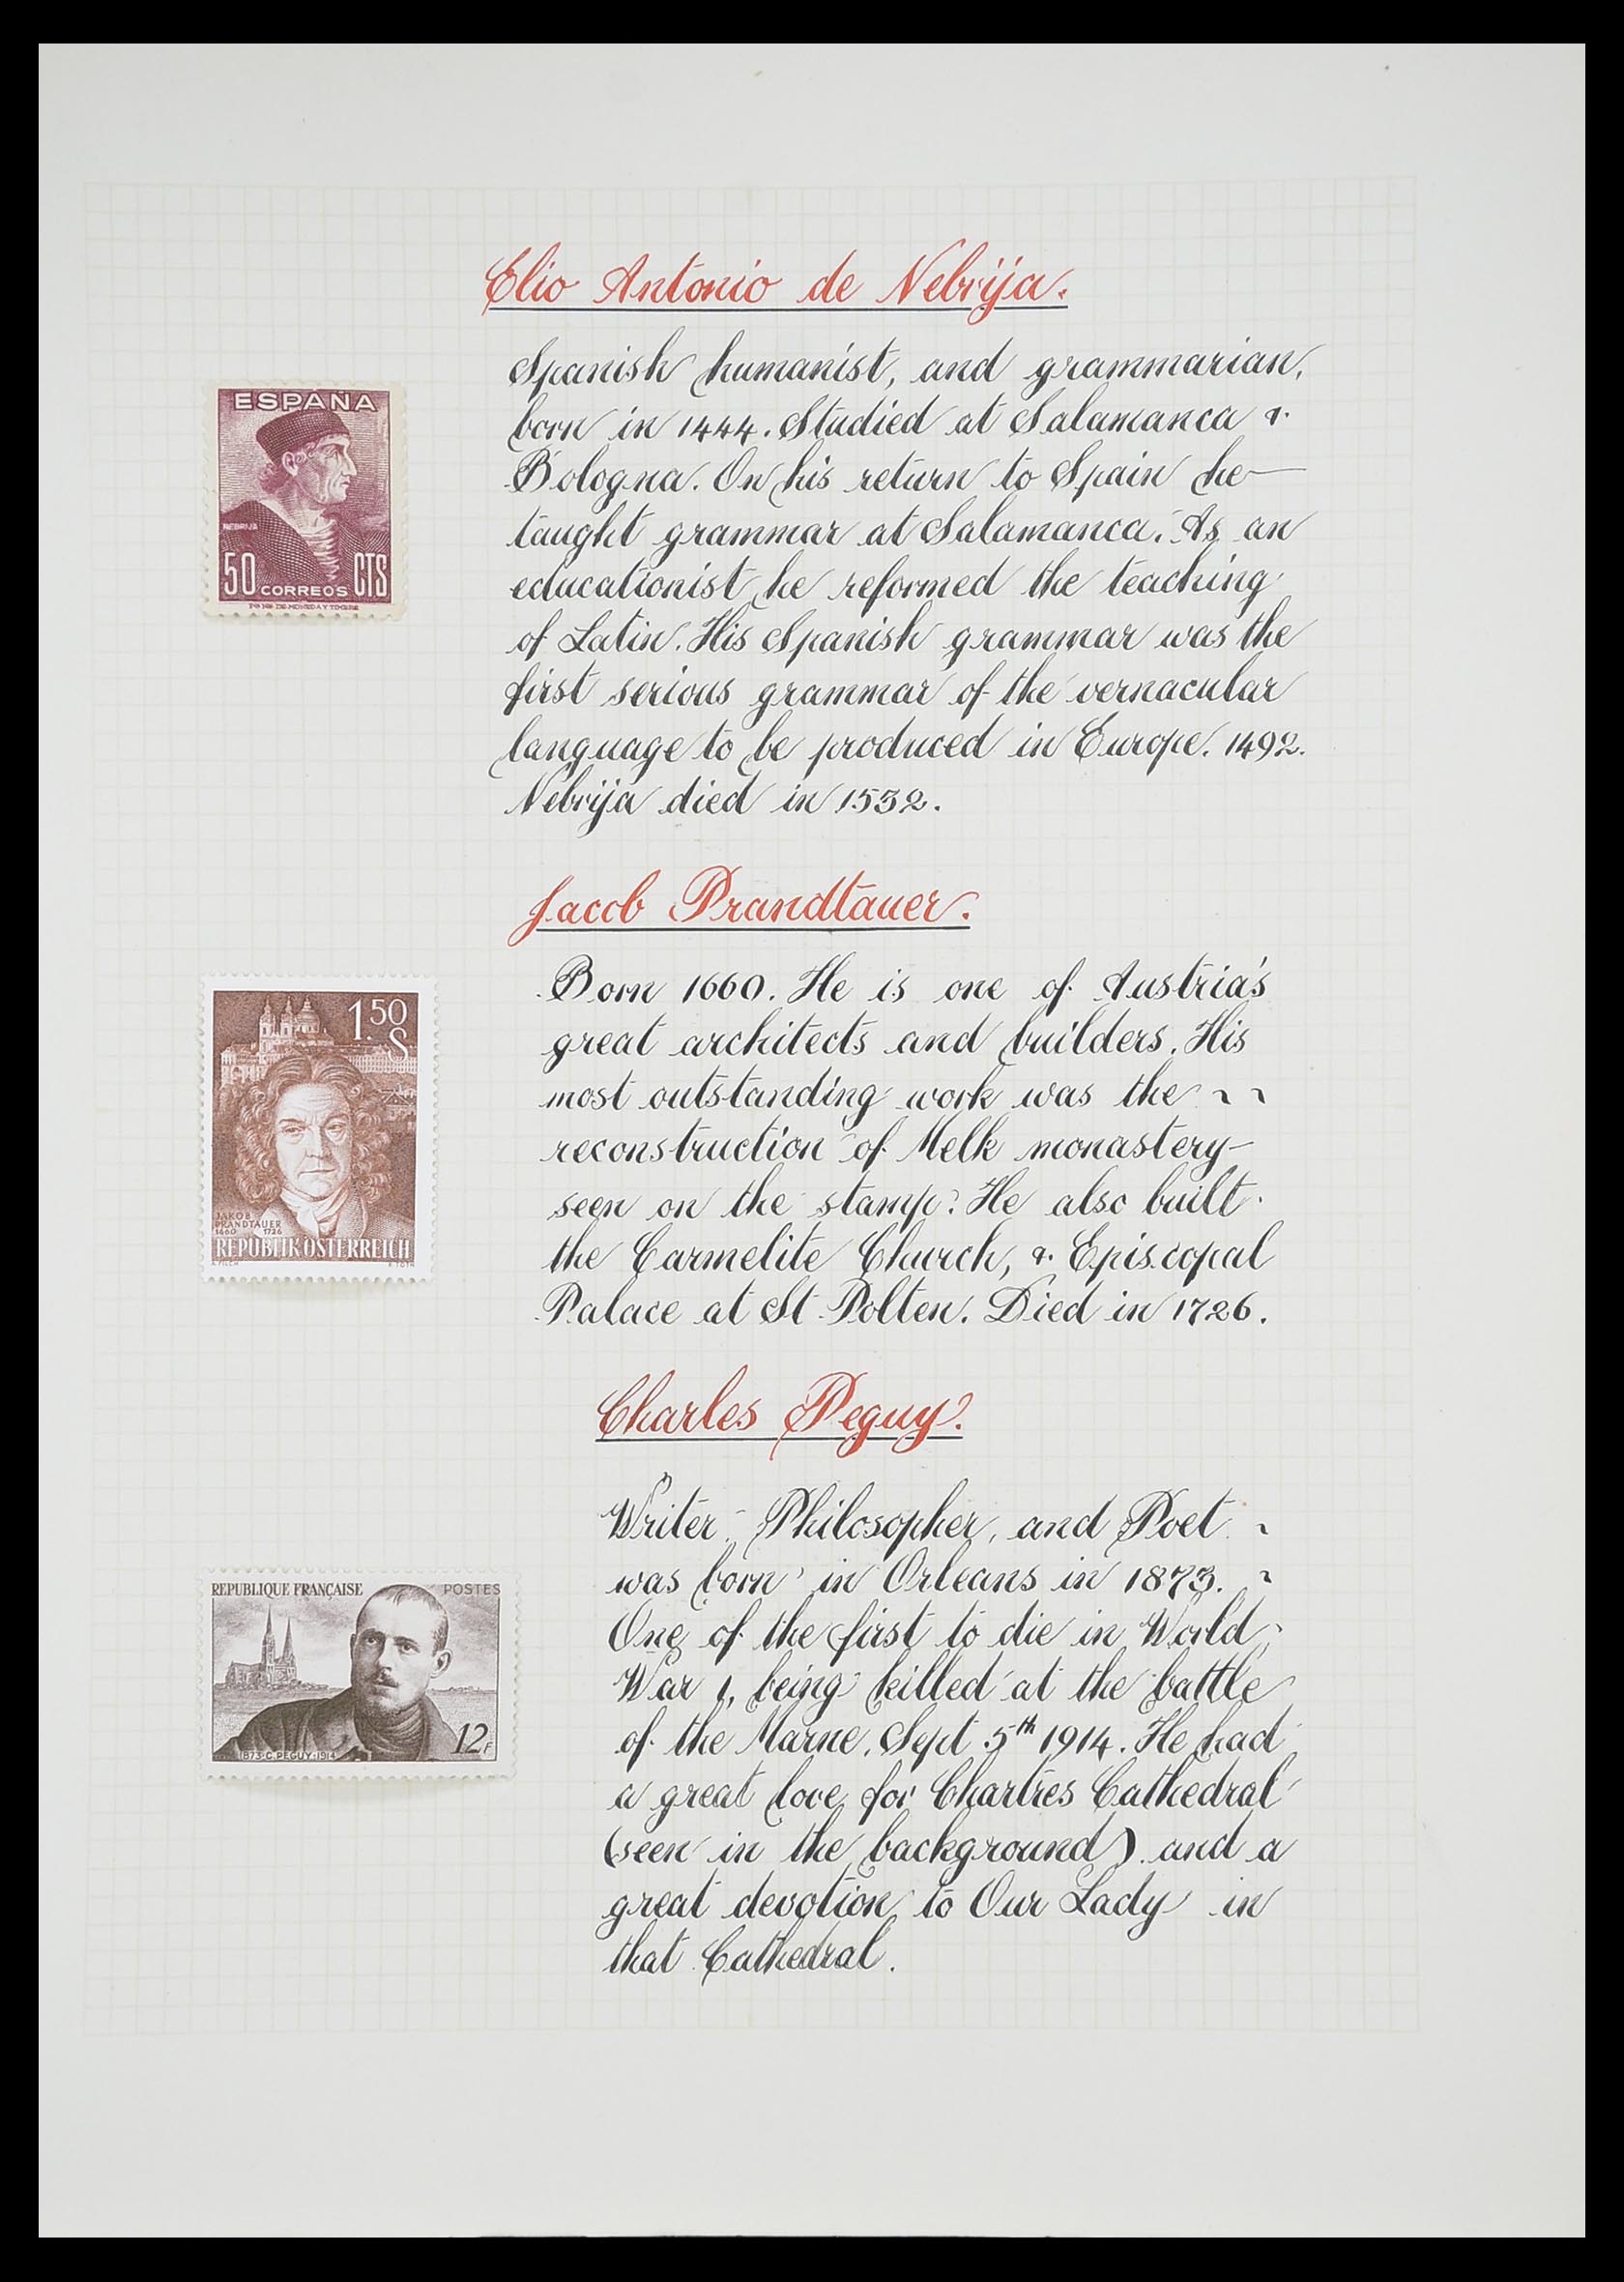 Elio Antonio de Nebrija.
Spanish humanist, and grammarian,
born in 1444. Studied at Salamanca &
Bologna. On his return to Spain he
taught grammar at Salamanca. As an
educationist he reformed the teaching
of Latin. His Spanish grammar was the
first serious grammar of the vernacular
language to be produced in Europe. 1492.
Nebrija died in 1532.
ESPAÑA
NEBRIJA
50 CORREOS CTS
Jacob Prandtauer.
Born 1660. He is one of Austria's
great architects and builders. His
most outstanding work was the ~ ~
reconstruction of Melk monastery-
seen on the stamp. He also built
the Carmelite Church, & Episcopal
Palace at St Polten. Died in 1726.
1.50 S
JAKOB
PRANDTAUER
1660 1726
REPUBLIK ÖSTERREICH
Charles Peguy.
Writer - Philosopher, and Poet ~
was born in Orleans in 1873. ~
One of the first to die in World
War 1, being killed at the battle
of the Marne, Sept 5th 1914. He had
a great love for Chartres Cathedral
(seen in the background) and a
great devotion to Our Lady in
that Cathedral.
REPUBLIQUE FRANÇAISE POSTES
12F
1873·C.PEGUY·1914